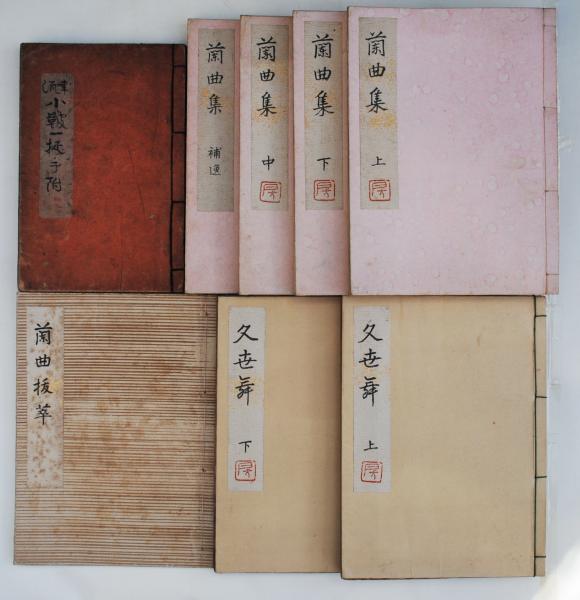 小鼓一挺手附
蘭曲集
補遺
蘭曲集
中
蘭曲集
下
蘭曲集
上
蘭曲抜萃
久世舞
下
久世舞
上